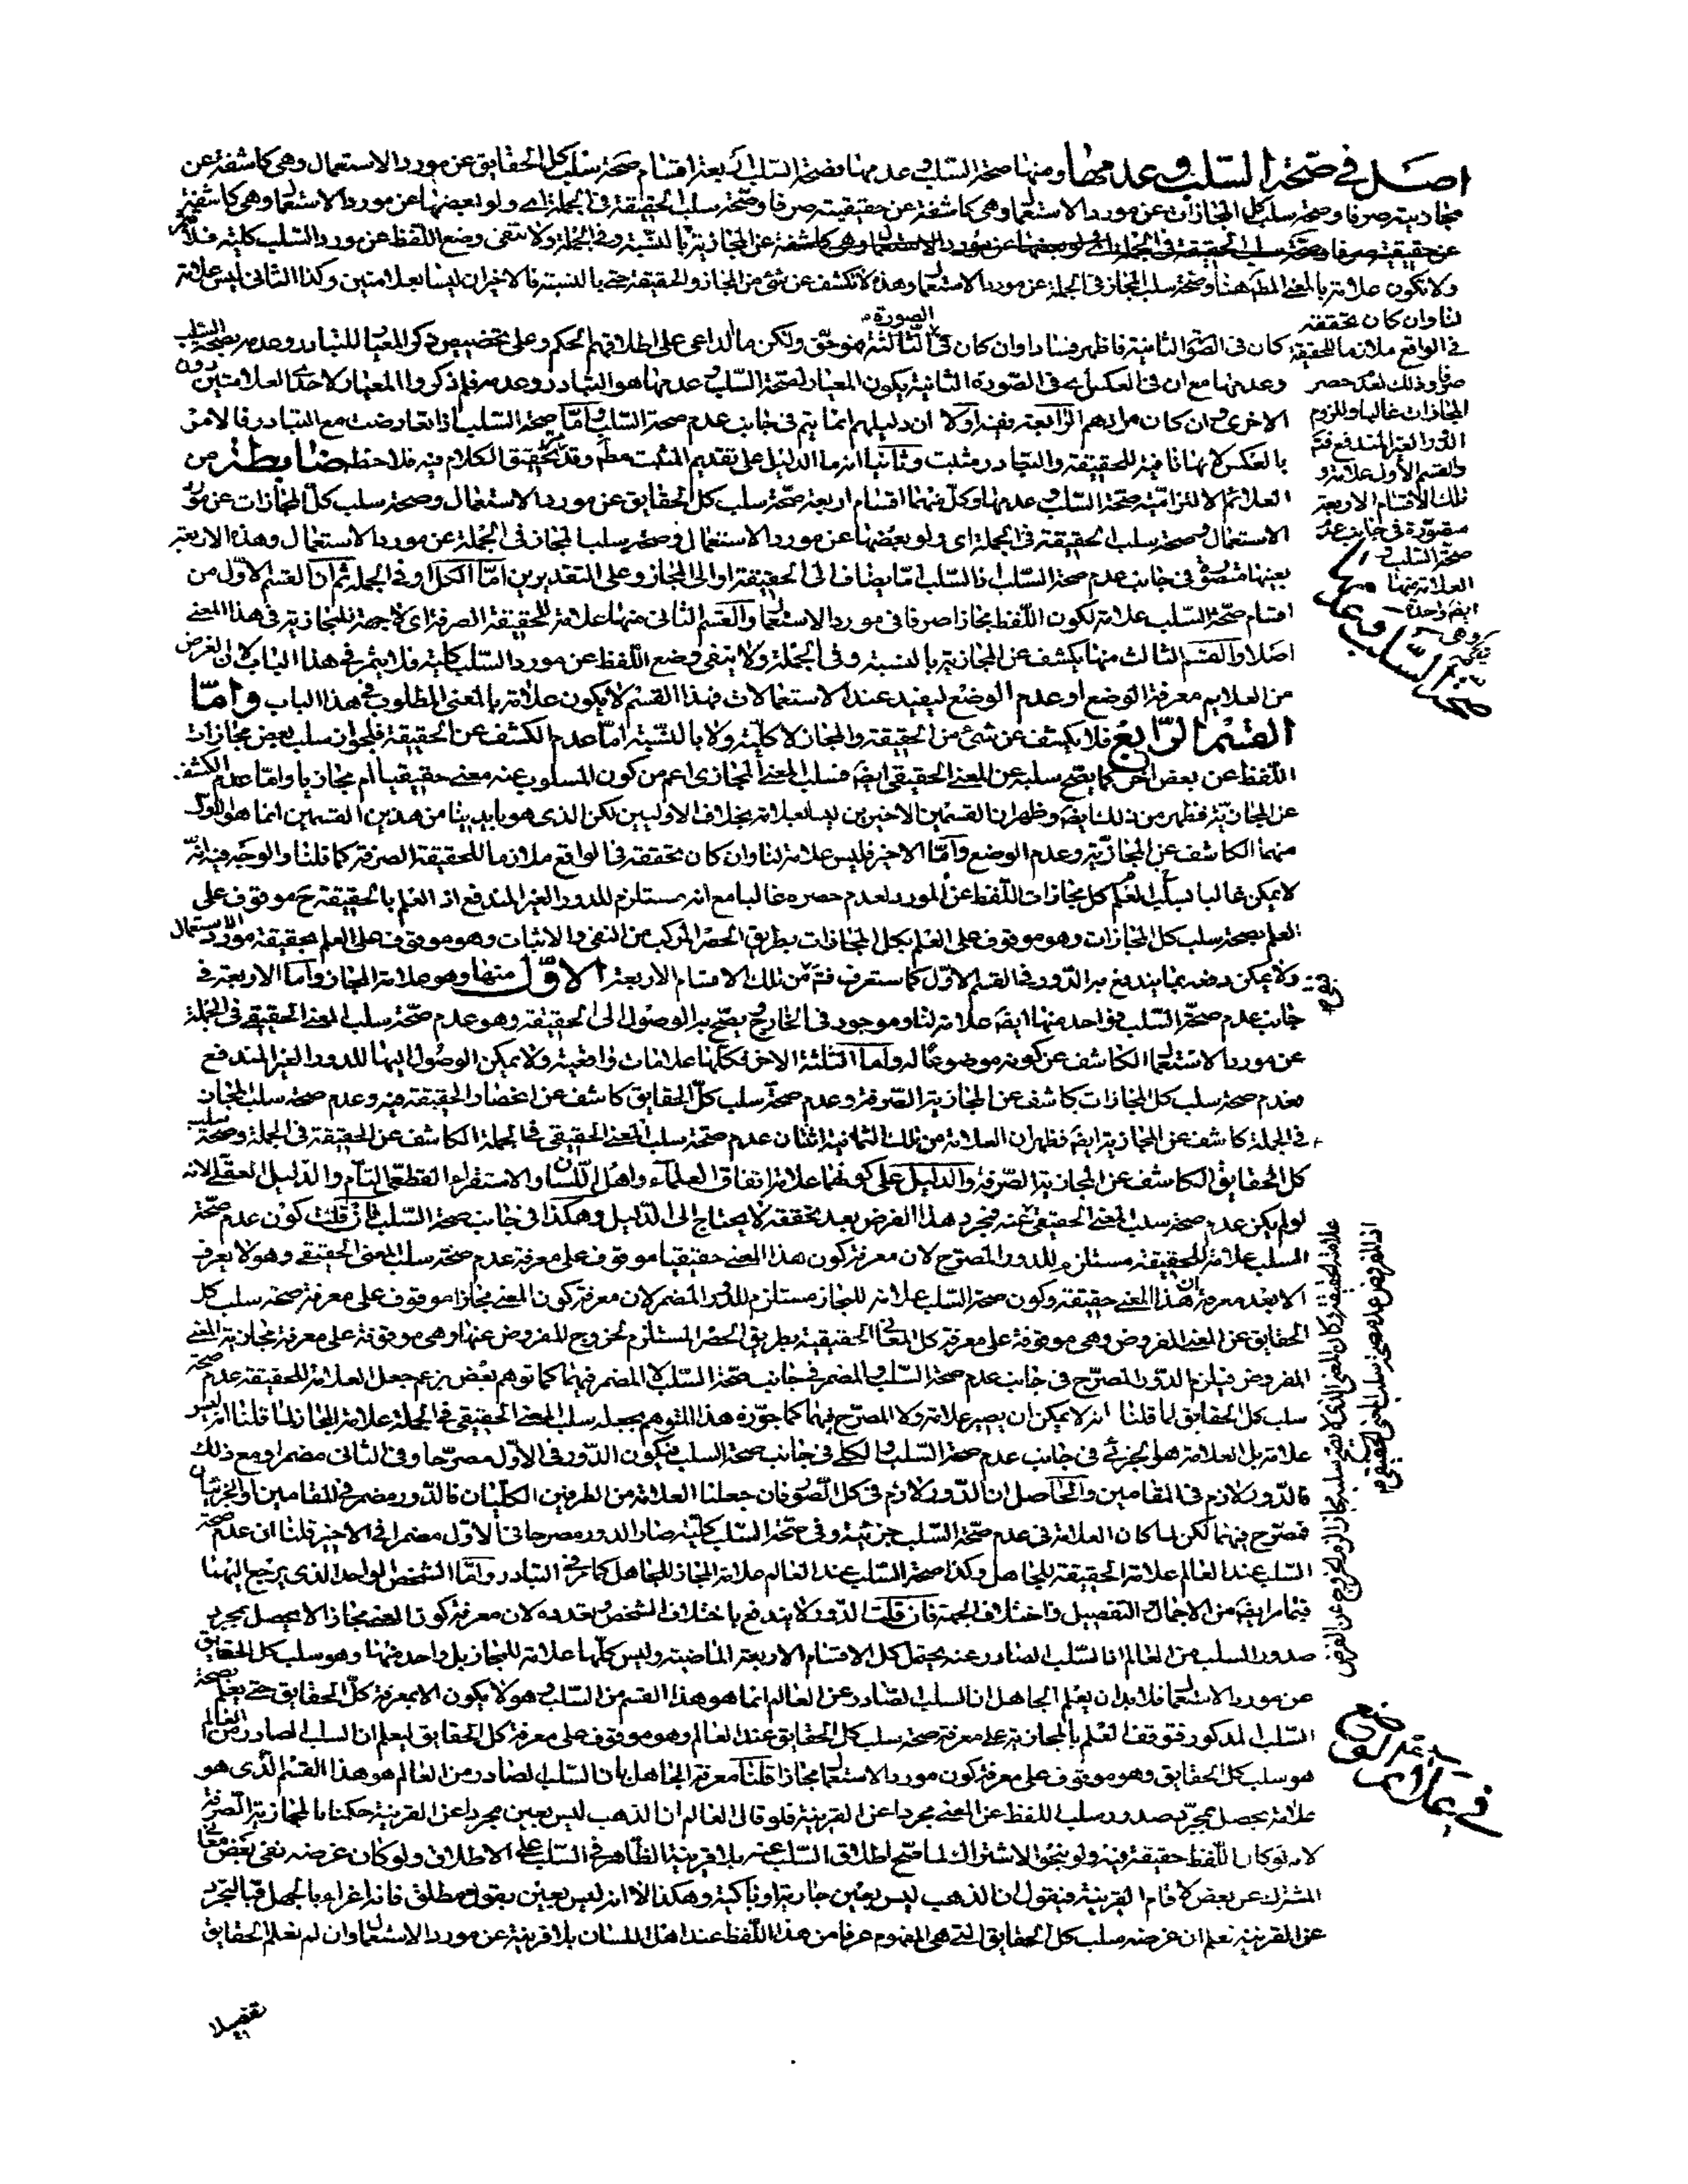 اصل في صحة السلب وعدمها ومنها صحة السلب وعدمها فصحة السلب اربعة اقسام صحة سلب كل الحقايق عن مورد الاستعمال وهى كاشفة عن
مجازيته صرفا وصحة سلب كل المجازات عن مورد الاستعمال وهى كاشفة عن حقيقيته صرفا وصحة سلب الحقيقة فى الجملة اى ولو بعضها عن مورد الاستعمال وهى كاشفة
عن المجازية بالنسبة وفى الجملة ولا تنفى وضع اللفظ عن مورد السلب كلية فلا
ولا تكون علامة بالمعنى المط هنا وصحة سلب المجاز فى الجملة عن مورد الاستعمال وهذه لا تكشف عن شئ من المجاز والحقيقة حتى بالنسبة فالاخيران ليسا بعلامتين وكذا الثانى ليس علامة
لنا وان كان تحققه
فى الواقع ملازما للحقيقة
صرفا وذلك لعدم حصر
المجازات غالبا وللزوم
الدور الغير المندفع فثم
والقسم الاول علامة و
تلك الاقسام الاربعة
متصورة فى جانب عدم
صحة السلب و
العلامة منها
ايضا واحدة
الصورة
كان فى الصورة الثانية فاظهر فسادا وان كان فى الثالثة فهو حق ولكن ما الداعى على اطلاقهم الحكم وعلى تخصيص ذكر المعيار للتبادر وعدمه بصحة السلب
وعدمها مع ان فى العكس اى فى الصورة الثانية يكون المعيار لصحة السلب وعدمها هو التبادر وعدمه فلم ذكروا المعيار لاحدى العلامتين دون
الاخرى وان كان مرادهم الرابعة ففيه اولا ان دليلهم انما يتم فى جانب عدم صحة السلب واما صحة السلب اذا تعارضت مع التبادر فالامر
بالعكس لانها نافية للحقيقة والتبادر مثبت وثانيا انه ما الدليل على تقديم المثبت مطلقا وقد مر تحقيق الكلام فيه فلاحظ ضابطة من
العلائم الالتزامية صحة السلب وعدمها وكل منهما اقسام اربعة صحة سلب كل الحقايق عن مورد الاستعمال وصحة سلب كل المجازات عن مورد
الاستعمال وصحة سلب الحقيقة فى الجملة اى ولو بعضها عن مورد الاستعمال وصحة سلب المجاز فى الجملة عن مورد الاستعمال وهذه الاربعة
بعينها متصورة فى جانب عدم صحة السلب فالسلب اما يضاف الى الحقيقة او الى المجاز وعلى التقديرين اما الكل او فى الجملة ثم ان القسم الاول من
اقسام صحة السلب علامة لكون اللفظ مجازا صرفا فى مورد الاستعمال والقسم الثانى منها علامة للحقيقة الصرفة اى لا جهة للمجازية فى هذا المعنى
اصلا والقسم الثالث منها يكشف عن المجازية بالنسبة وفى الجملة ولا ينفى وضع اللفظ عن مورد السلب كلية فلا يثمر فى هذا الباب لان الغرض
من العلايم معرفة الوضع او عدم الوضع ليفيد عند الاستعمالات فهذا القسم لا يكون علامة بالمعنى المطلوب فى هذا الباب واما
القسم الرابع فلا يكشف عن شئ من الحقيقة والمجاز لا كلية ولا بالنسبة اما عدم الكشف عن الحقيقة فلجواز سلب بعض مجازات
اللفظ عن بعض اخر كما يصح سلبه عن المعنى الحقيقى ايضا فسلب المعنى المجازى اعم من كون المسلوب عنه معنى حقيقيا ام مجازيا واما عدم الكشف
عن المجازية فظهر من ذلك ايضا وظهر ان القسمين الاخيرين ليسا بعلامة بخلاف الاوليين لكن الذى هو بايدينا من هذين القسمين انما هو الاول
منهما الكاشف عن المجازية وعدم الوضع واما الاخر فليس علامة لنا وان كان تحققه فى الواقع ملازما للحقيقة الصرفة كما قلنا والوجه فيه انه
لا يمكن غالبا سلب العلم كل مجازات اللفظ عن المورد لعدم حصره غالبا مع انه مستلزم للدور الغير المندفع اذ العلم بالحقيقة ح موقوف على
العلم بصحة سلب كل المجازات وهو موقوف على العلم بكل المجازات بطريق الحصر المركب من النفى والاثبات وهو موقوف على العلم بحقيقة مورد الاستعمال
ولا يمكن دفعه بما يندفع به الدور فى القسم الاول كما ستعرف فثم من تلك الاقسام الاربعة الاول منها وهو علامة المجاز واما الاربعة فى
جانب عدم صحة السلب فواحد منها ايضا علامة لنا وموجود فى الخارج يصح به الوصول الى الحقيقة وهو عدم صحة سلب المعنى الحقيقى فى الجملة
عن مورد الاستعمال الكاشف عن كونه موضوعا له واما الثلثة الاخر فكلها علامات واقعية ولا يمكن الوصول اليها للدور الغير المندفع
فعدم صحة سلب كل المجازات كاشف عن المجازية الصرفة وعدم صحة سلب كل الحقايق كاشف عن انحصار الحقيقة فيه وعدم صحة سلب المجاز
فى الجملة كاشف عن المجازية ايضا فظهر ان العلامة من تلك الثمانية اثنان عدم صحة سلب المعنى الحقيقى فى الجملة الكاشف عن الحقيقة فى الجملة وصحة سلب
كل الحقايق الكاشف عن المجازية الصرفة والدليل على كونهما علامة اتفاق العلماء واهل اللسان والاستقراء القطعى التام والدليل العقلى لانه
لو لم يكن عدم صحة سلب المعنى الحقيقى عنه فبمجرد هذا الفرض بعد تحققه لا يحتاج الى الدليل وهكذا فى جانب صحة السلب فان قلت كون عدم صحة
السلب علامة للحقيقة مستلزم للدور المصرح لان معرفة كون هذا المعنى حقيقيا موقوف على معرفة عدم صحة سلب المعنى الحقيقى وهو لا يعرف
الا بعد معرفة ان هذا المعنى حقيقة وكون صحة السلب علامة للمجاز مستلزم للدور المضمر لان معرفة كون المعنى مجازا موقوف على معرفة صحة سلب كل
الحقايق عن المعنى المفروض وهى موقوفة على معرفة كل المعانى الحقيقية بطريق الحصر المستلزم لخروج المفروض عنها وهى موقوفة على معرفة مجازية المعنى
المفروض فيلزم الدور المصرح فى جانب عدم صحة السلب والمضمر فى جانب صحة السلب لا المضمر فيهما كما توهم بعض بزعم جعل العلامة للحقيقة عدم صحة
سلب كل الحقايق لما قلنا انه لا يمكن ان يصير علامة ولا المصرح فيهما كما جوزه هذا المتوهم بجعله سلب المعنى الحقيقى فى الجملة علامة المجاز لما قلنا انه ليس
علامة بل العلامة هو الجزئى فى جانب عدم صحة السلب والكلى فى جانب صحة السلب فيكون الدور فى الاول مصرحا وفى الثانى مضمرا ومع ذلك
فالدور لازم فى المقامين والحاصل ان الدور لازم فى كل الصور فان جعلنا العلامة من الطرفين الكليتان فالدور مضمر فى المقامين او الجزئيتان
فمصرح فيهما لكن لما كان العلامة فى عدم صحة السلب جزئية وفى صحة السلب كلية صار الدور مصرحا فى الاول مضمرا فى الاخير قلنا ان عدم صحة
السلب عند العالم علامة الحقيقة للجاهل وكذا صحة السلب عند العالم علامة المجاز للجاهل كما مر فى التبادر واما الشخص الواحد الذى يرجع اليهما
فيما مر ايضا من الاجمال والتفصيل واختلاف الجهة فان قلت الدور لا يندفع باختلاف الشخص وتعدده لان معرفة كون المعنى مجازا لا يحصل بمجرد
صدور السلب من العالم اذ السلب الصادر عنه يحتمل كل الاقسام الاربعة الماضية وليس كلها علامة للمجاز بل واحد منها وهو سلب كل الحقايق
عن مورد الاستعمال فلا بد ان يعلم الجاهل ان السلب الصادر عن العالم انما هو هذا القسم من السلب وهو لا يكون الا بمعرفة كل الحقايق حتى يعلم بصحة
السلب المذكور فتوقف العلم بالمجازية على معرفة صحة سلب كل الحقايق عند العالم وهو موقوف على معرفة كل الحقايق ليعلم ان السلب الصادر من العالم
هو سلب كل الحقايق وهو موقوف على معرفة كون مورد الاستعمال مجازا قلنا معرفة الجاهل بان السلب الصادر من العالم هو هذا القسم الذى هو
علامة يحصل بمجرد صدور سلب اللفظ عن المعنى مجردا عن القرينة فلو قال العالم ان الذهب ليس بعين مجردا عن القرينة حكمنا بالمجازية الصرفة
لانه لو كان اللفظ حقيقة فيه ولو بنحو الاشتراك لما صح اطلاق السلب عنه بلا قرينة الظاهر فى السلب على الاطلاق ولو كان غرضه نفى بعض معانى
المشترك عن بعض لاقام القرينة فيقول ان الذهب ليس بعين جارية او باكية وهكذا لا انه ليس بعين بقول مطلق فانه اغراء بالجهل فبالتجرد
عن القرينة نعلم ان غرضه سلب كل الحقايق التى هى المفهوم عرفا من هذا اللفظ عند اهل اللسان بلا قرينة عن مورد الاستعمال وان لم نعلم الحقايق
صحة السلب وعدمها
اذ المفروض عدم صحة سلب المعنى الحقيقى
علامة الحقيقة وكان المعنى الذى لا يصح سلبه مجازا لزم الخروج عن الفرض
في علائم الوضع
تفصيلا